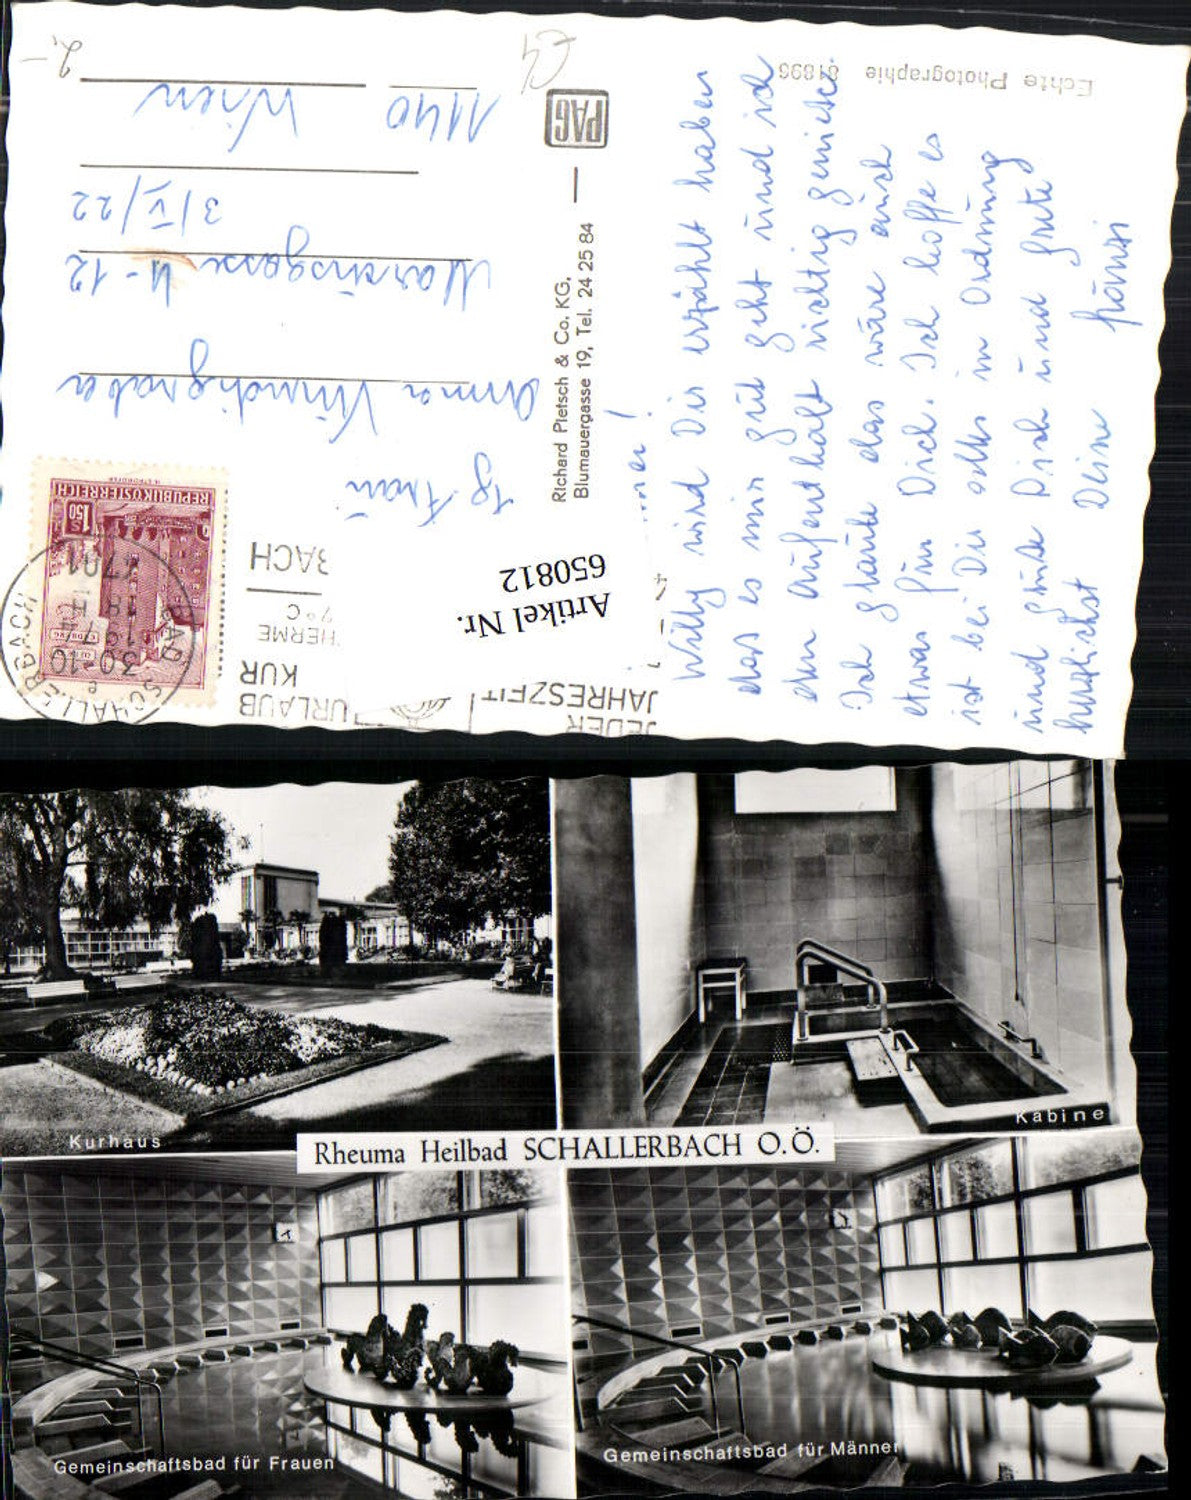 Echte Photographie 81896
Willy wird Dir erzählt haben
das es mir gut geht und ich
den Aufenthalt richtig genieße.
Ich glaube das wäre auch
etwas für Dich. Ich hoffe es
ist bei Dir alles in Ordnung
und Grüße Dich und
herzlichst Deine
PAG
Richard Pietsch & Co. KG,
Blumauergasse 19, Tel. 24 25 84
Frau
Anna Windigraber
11-12
3/V/22
1140 Wien
2,-
REPUBLIK ÖSTERREICH
S 1.50
BAD SCHALLERBACH
4701
JEDER
JAHRESZEIT
URLAUB
KUR
THERME
7°C
BACH
Artikel Nr.
650812
Kurhaus
Kabine
Rheuma Heilbad SCHALLERBACH O.Ö.
Gemeinschaftsbad für Frauen
Gemeinschaftsbad für Männer